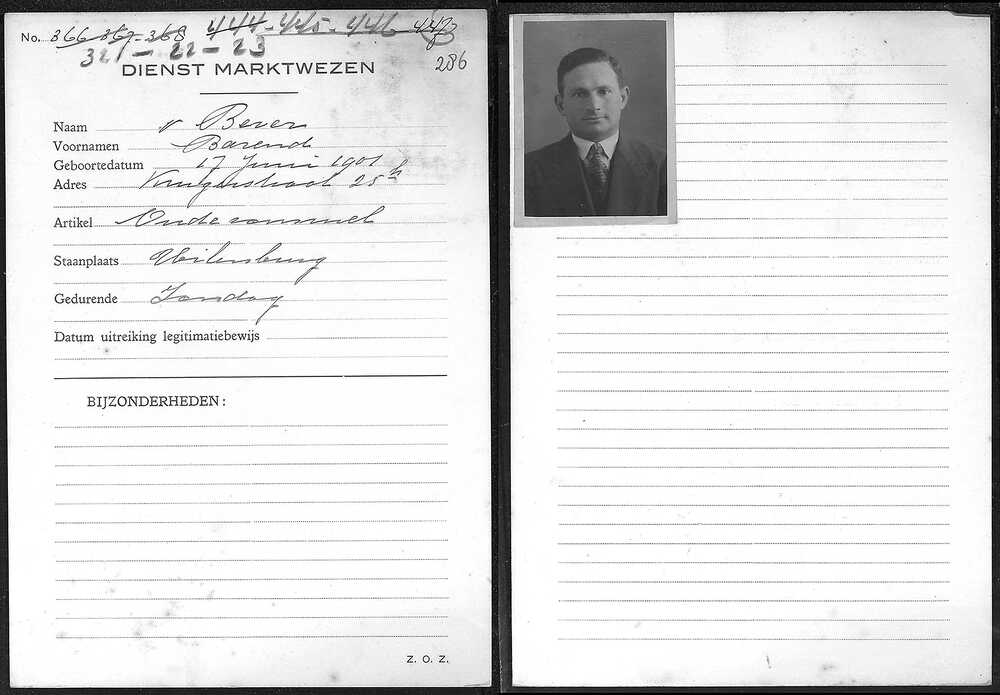 No. 366-367-368 444-445-446-447
321-22-23
286
DIENST MARKTWEZEN
Naam v Bever
Voornamen Barend
Geboortedatum 17 Juni 1901
Adres Krugerstraat 25 h
Artikel Oude rommel
Staanplaats Uilenburg
Gedurende Zondag
Datum uitreiking legitimatiebewijs
BIJZONDERHEDEN:
Z. O. Z.